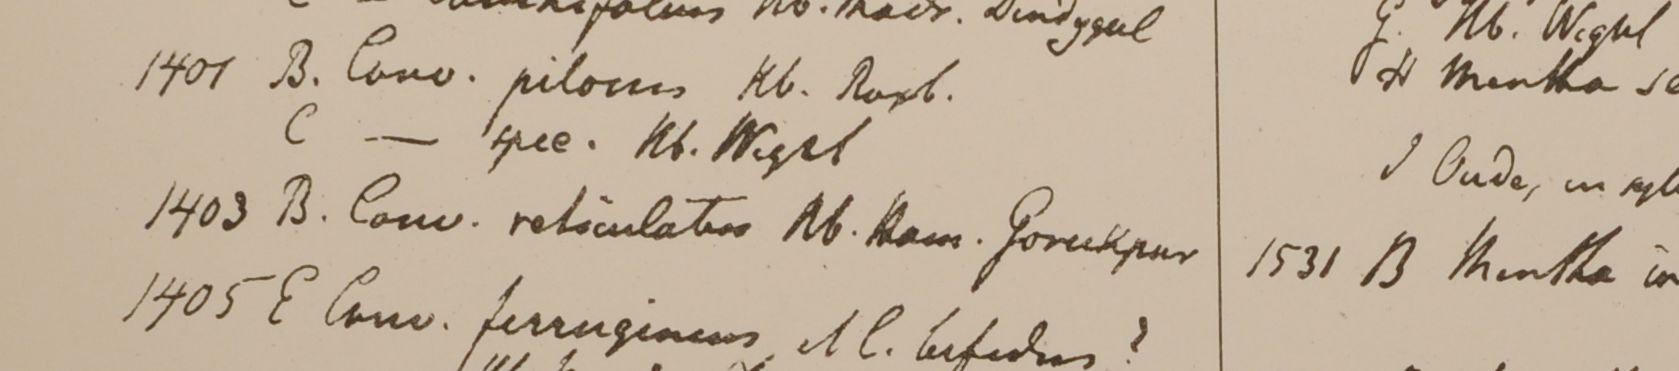 Hb. Madr. Dindygul
1401 B. Conv. pilosus Hb. Roxb.
C — spec. Hb. Wight
1403 B. Conv. reticulatus Hb. Ham. Gorukpur
1405 E Conv. ferrugineus et C. bifidus?
G. Hb. Wight
H Mentha
I Oude, in
1531 B Mentha